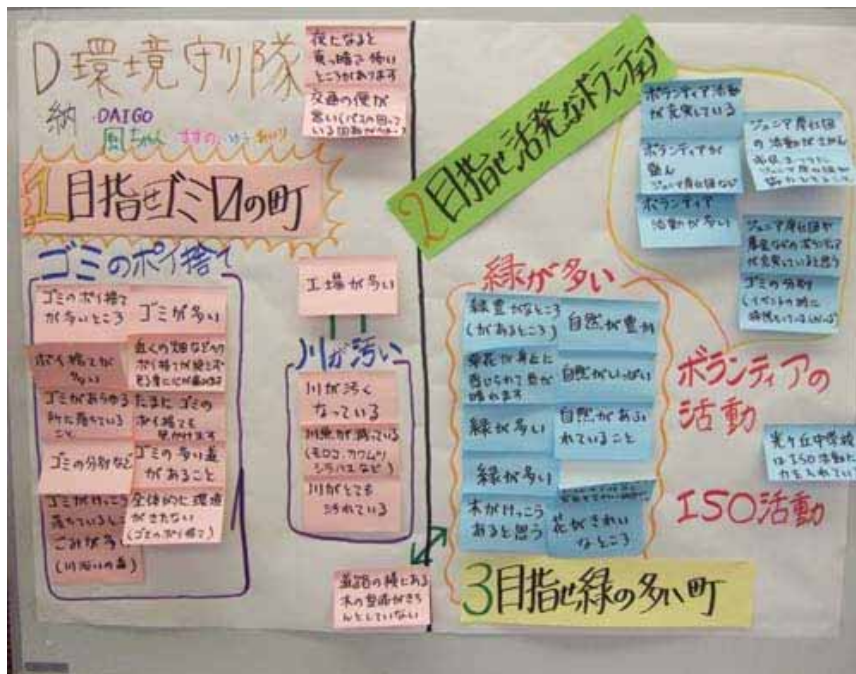 D環境守り隊
納 DAIGO
ちゃん すずの ゆう
夜になると
真っ暗で怖い
ところがあります
交通の便が
悪い(バスの回って
いる回数が
1目指せゴミ0の町
ゴミのポイ捨て
ゴミのポイ捨て
が多いところ
ゴミが多い
ポイ捨てが
多い
近くの畑などの
ポイ捨てが絶えず
見る度に心が痛みます
ゴミがあらゆる
所に落ちている
こと
たまにゴミの
ポイ捨ても
見かけます
ゴミの分別など
ゴミの多い道
があること
ゴミがけっこう
落ちているし
ごみが多い
(川沿いの森)
全体的に環境
がきたない
(ゴミのポイ捨て)
工場が多い
川が汚い
川が汚く
なっている
川魚が減っている
(モロコ、カワムツ
シラハエなど)
川がとても
汚れている
道路の横にある
木の整備がきち
んとしていない
2目指せ活発なボランティア
ボランティア活動
が充実している
ボランティアが
盛ん
ジュニア奉仕団など
ボランティア
活動が多い
ジュニア奉仕団
の活動がさかん
ジュニア奉仕団や
などのボランティア
が充実していると思う
ゴミの分別
(イベントの時に
ボランティアの
活動
光ケ丘中学校
はISO活動に
力を入れてい
ISO活動
緑が多い
緑豊かなところ
(があるところ)
自然が豊か
草花が身近に
感じられて
晴れます
自然がいっぱい
緑が多い
自然があふ
れていること
緑が多い
木がけっこう
あると思う
花がきれい
なところ
3目指せ緑の多い町